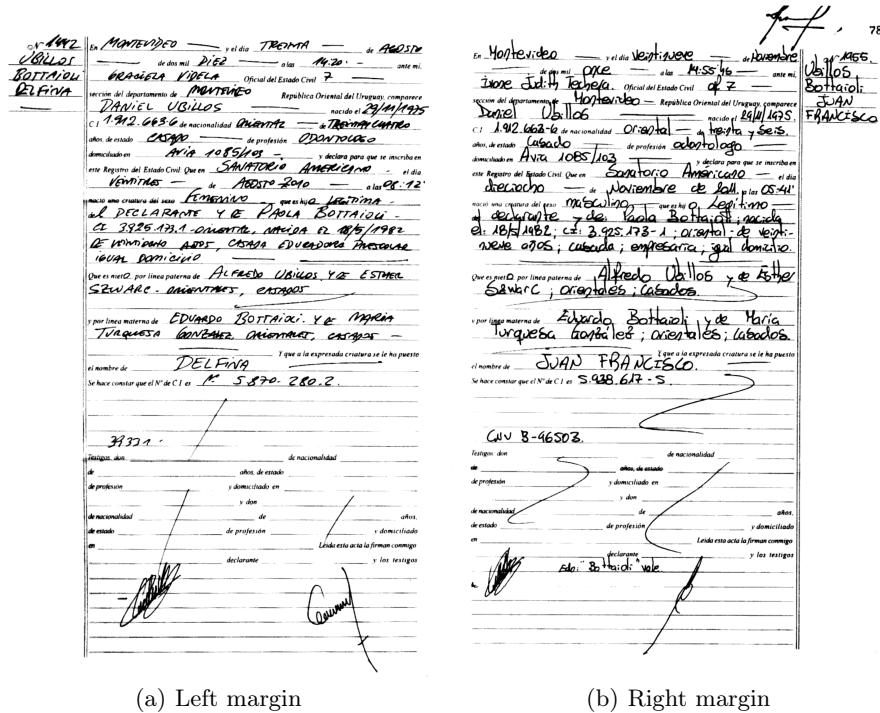 Nº 1442
UBILLOS
BOTTAIOLI
DELFINA
En MONTEVIDEO y el día TREINTA de AGOSTO
de dos mil DIEZ a las 14:20 ante mi,
GRACIELA VIDELA Oficial del Estado Civil 7
sección del departamento de MONTEVIDEO República Oriental del Uruguay, comparece
DANIEL UBILLOS nacido el 29/11/1975
C I 1.912.663-6 de nacionalidad ORIENTAL de TREINTA CUATRO
años, de estado CASADO de profesión ODONTOLOGO
domiciliado en AVIA 1085/103 y declara para que se inscriba en
este Registro del Estado Civil Que en SANATORIO AMERICANO el día
VEINTITRES de AGOSTO 2010 a las 08:12
nació una criatura del sexo FEMENINO que es hija LEGITIMA-
del DECLARANTE Y DE PAOLA BOTTAIOLI -
CI 3925.173.1-ORIENTAL, NACIDA EL 18/5/1982
DE VEINTIOCHO AÑOS, CASADA EDUCADORA PREESCOLAR
IGUAL DOMICILIO
Que es nieta por línea paterna de ALFREDO UBILLOS Y DE ESTHER
SZWARC - ORIENTALES, CASADOS
y por línea materna de EDUARDO BOTTAIOLI. Y DE MARIA
TURQUESA GONZALEZ ORIENTALES, CASADOS -
Y que a la expresada criatura se le ha puesto
el nombre de DELFINA
Se hace constar que el Nº de C I es 5.870-280.2.
39331.
Testigos, don de nacionalidad
de años, de estado
de profesión y domiciliado en
y don
de nacionalidad de años,
de estado de profesión y domiciliado
en Leída esta acta la firman conmigo
declarante y los testigos
(a) Left margin
78
Nº 1955.
Ubillos
Bottaioli
JUAN
FRANCISCO
En Montevideo y el día veintinueve de Noviembre
de dos mil once a las 14:55/46 ante mi,
Ivone Judith Techera. Oficial del Estado Civil of 7
sección del departamento de Montevideo República Oriental del Uruguay, comparece
Daniel Ubillos nacido el 29/11/1975.
C I 1.912.663-6 de nacionalidad Oriental de treinta y Seis.
años, de estado Casado de profesión odontologo
domiciliado en Avia 1085/103 y declara para que se inscriba en
este Registro del Estado Civil Que en Sanatorio Americano el día
dieciocho de Noviembre de 2011. a las 05:41'
nació una criatura del sexo masculino que es hijo Legítimo
del declarante y de: Paola Bottaioli; nacida
el: 18/5/1982; CI: 3.925.173-1; oriental-de veinti-
nueve años; casada; empresaria; igual domicilio.
Que es nieto por línea paterna de Alfredo Ubillos y de Esther
Szwarc; orientales; casados.
y por línea materna de Eduardo Bottaioli y de María
Turquesa González; orientales; casados.
Y que a la expresada criatura se le ha puesto
el nombre de JUAN FRANCISCO.
Se hace constar que el Nº de C I es 5.938.617-5.
CNV B-96503.
Testigos, don de nacionalidad
de años, de estado
de profesión y domiciliado en
y don
de nacionalidad de años,
de estado de profesión y domiciliado
en Leída esta acta la firman conmigo
declarante y los testigos
Edo: "Bottaioli" vale.
(b) Right margin